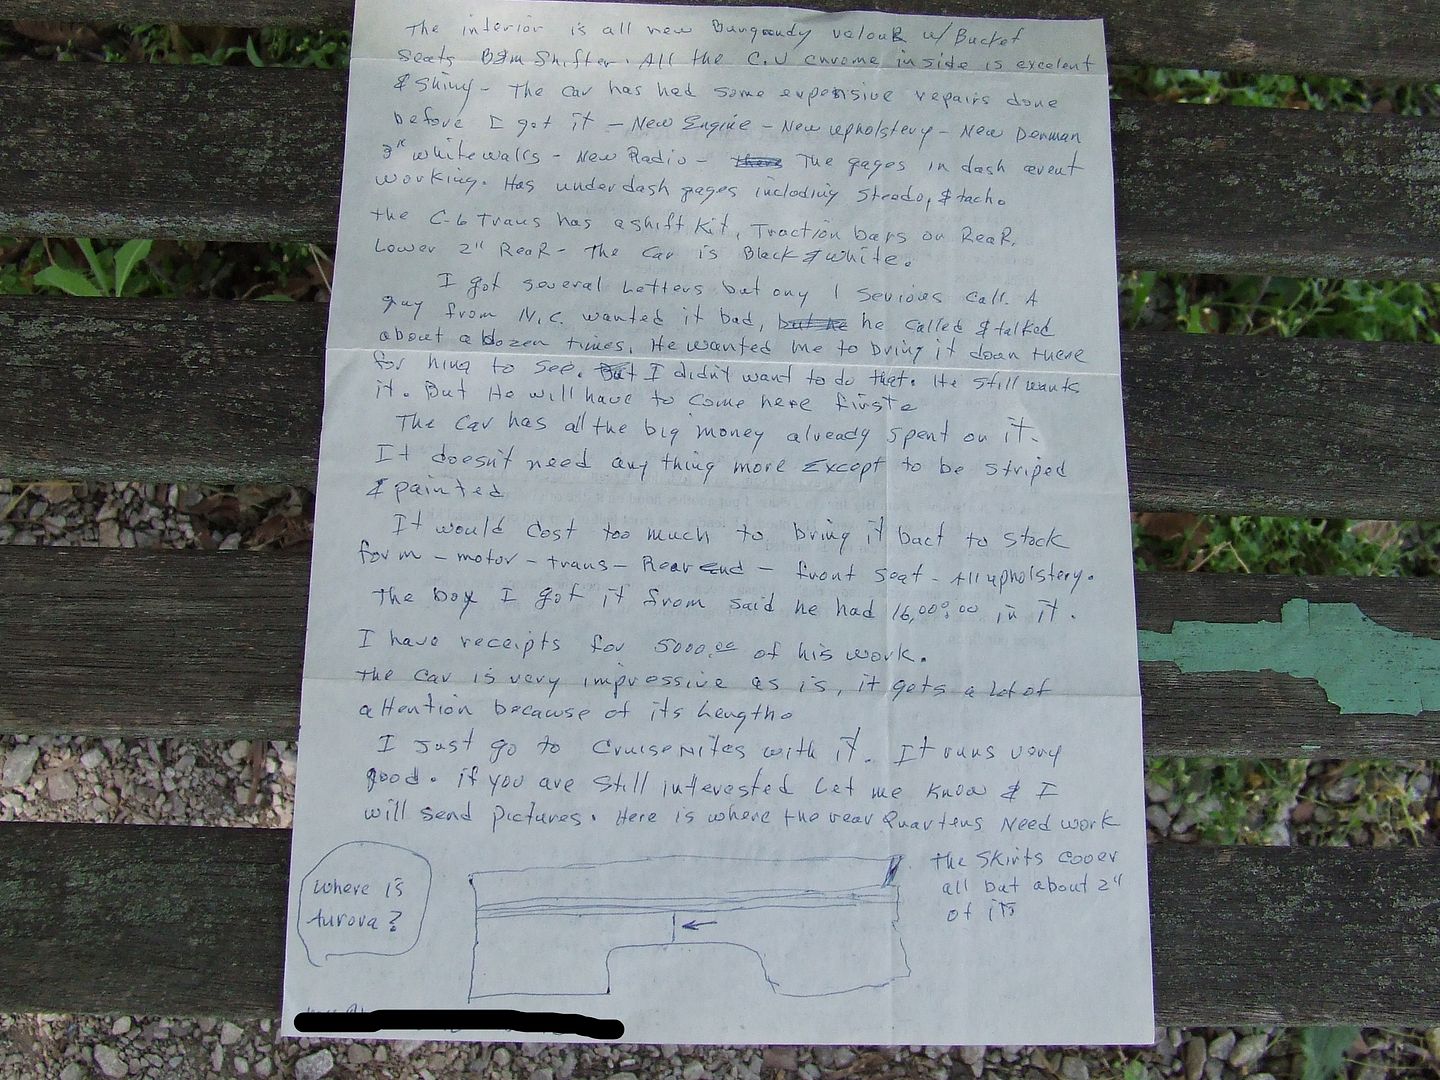 The interior is all new Burgandy valouR w/ Bucket
Seats B&m Shifter. All the C.V chrome inside is excelent
& Shiny - The car has had some expensive repairs done
before I got it - New Engine - New upholstery - New Denman
3" whitewalls - New Radio - there The gages in dash arent
working. Has underdash gages including Steedo, & tach.
the C-6 Trans has a shift Kit, Traction bars on ReaR,
Lower 2" ReaR - The Car is Black & white.
I got several Letters but ony 1 Serious Call. A
guy from N.C. wanted it bad, but he he called & talked
about a dozen times. He wanted me to bring it down there
for him to see. But I didn't want to do that. He still wants
it. But He will have to come here first.
The Car has all the big money already spent on it.
It doesn't need any thing more Except to be striped
& painted
It would Cost too much to bring it bact to stock
form - motor - trans - Rear end - front seat - All upholstery.
The boy I got it from said he had 16,000.00 in it.
I have receipts for 5000.00 of his work.
the Car is very impressive as is, it gets a Lot of
attention because of its Length.
I Just go to Cruise Nites with it. It runs very
good. if you are Still interested Let me Know & I
will send pictures. Here is where the rear Quarters Need work
the Skirts cover
all but about 2"
of it
where is
turova?